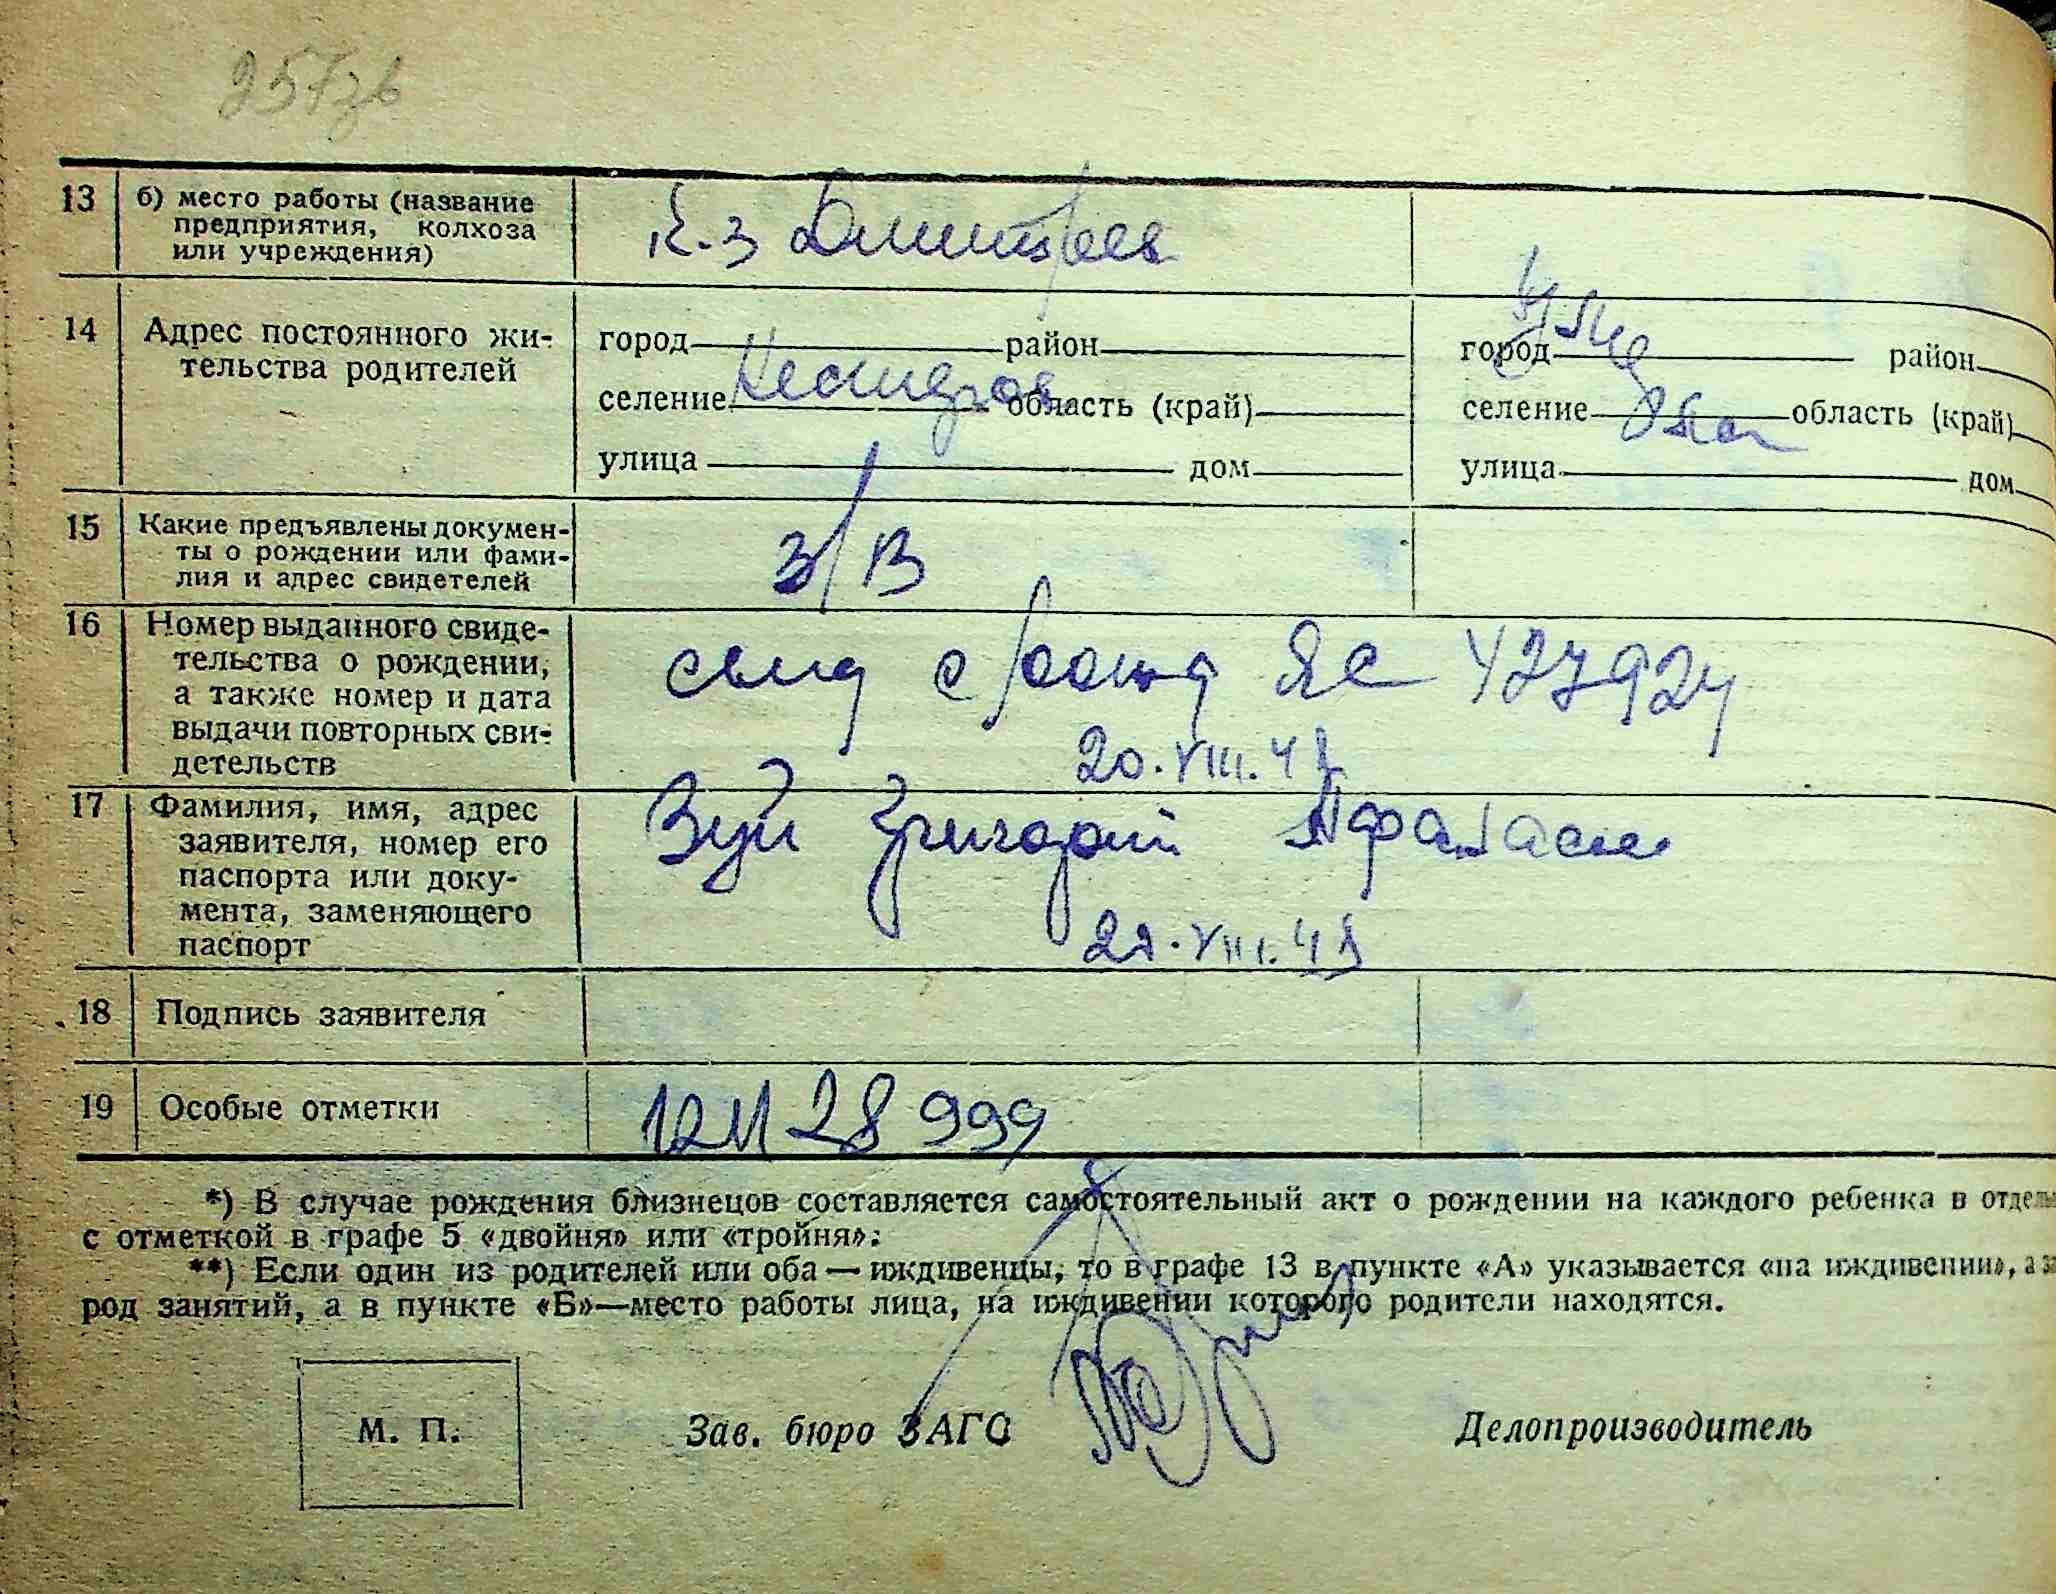 13 б) место работы (название
предприятия, колхоза
или учреждения)
К.З Дмитров
14 Адрес постоянного жи-
тельства родителей
город район
город район
селение область (край)
селение область (край)
улица дом
улица дом
15 Какие предъявлены докумен-
ты о рождении или фами-
лия и адрес свидетелей
З/В
16 Номер выданного свиде-
тельства о рождении,
а также номер и дата
выдачи повторных сви-
детельств
427924
20.VIII.41
17 Фамилия, имя, адрес
заявителя, номер его
паспорта или доку-
мента, заменяющего
паспорт
Зуй Григорий Афанасие
VIII.41
18 Подпись заявителя
19 Особые отметки
28 999
*) В случае рождения близнецов составляется самостоятельный акт о рождении на каждого ребенка в
с отметкой в графе 5 «двойня» или «тройня».
**) Если один из родителей или оба — иждивенцы, то в графе 13 в пункте «А» указывается «на иждивении», а
род занятий, а в пункте «Б»—место работы лица, на иждивении которого родители находятся.
М. П.
Зав. бюро ЗАГС
Делопроизводитель